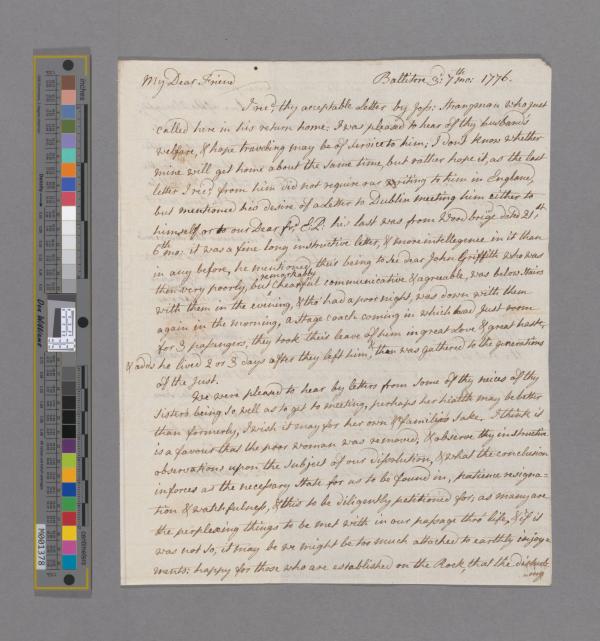 My Dear Friend Ballitore 3: 7th mo: 1776.
I recd thy acceptable Letter by Jos: Strangman who just
called here in his return home; I was pleased to hear of thy husband's
welfare, & hope traveling may be of service to him; I don't know whether
mine will get home about the same time, but rather hope it, as the last
letter I recd from him did not require our writing to him in England,
but mentioned his desire of a letter to Dublin meeting him either to
himself or to our Dear frd his last was from Woodbridge dated 21st
6th mo: it was a fine long instructive letter, & more intellegence in it than
in any before, he mentioned their being to see dear John Griffith who was
then very poorly, but remarkably chearful communicative & agreable, was below stairs
with them in the evening, & tho' had a poor night, was down with them
again in the morning, a stage coach coming in which had just room
for 3 passengers, they took their leave of him in great love & great haste,
& adds he lived 2 or 3 days after they left him, then was gathered to the generations
of the Just.
We were pleased to hear by letters from some of thy neices of thy
sister's being so well as to get to meeting, perhaps her health may be better
than formerly, I wish it may for her own & family's sake. I think it
is a favour that the poor woman was removed, & observe thy instructive
observations upon the subject of our dissolution, & what the conclusion
inforces as the necessary state for us to be found in, patience resigna-
tion & watchfulness, & this to be diligently petitioned for, as many are
the perplexing things to be met with in our passage thro' life, & if it
was not so, it may be we might be too much attached to earthly injoy-
ments; happy for those who are established on the Rock, that the
inches
centimeters
M001378